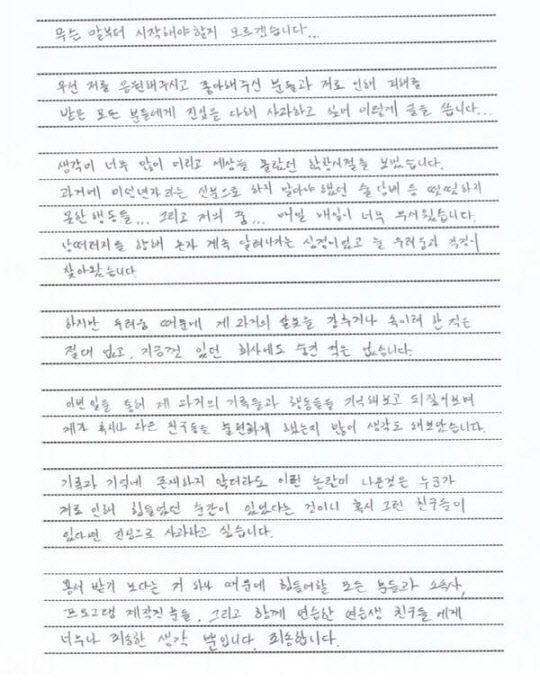 무슨 말부터 시작해야할지 모르겠습니다...
우선 저를 응원해주시고 좋아해주신 분들과 저로 인해 피해를
받은 모든 분들에게 진심을 다해 사과하고 싶어 이렇게 글을 씁니다...
생각이 너무 많이 어리고 세상을 몰랐던 학창시절을 보냈습니다.
과거에 미성년자라는 신분으로 하지 말아야 했던 술 담배 등 떳떳하지
못한 행동들... 그리고 저의 꿈... 매일 매일이 너무 무서웠습니다.
낭떠러지를 향해 혼자 계속 달려나가는 심정이었고 늘 두려움과 걱정이
찾아왔습니다.
하지만 두려움 때문에 제 과거의 잘못을 감추거나 속이려 한 적은
절대 없고, 지금껏 있던 회사에도 숨긴 적은 없습니다.
이번 일을 통해 제 과거의 기록들과 행동들을 기억해보고 되짚어보며
제가 혹시나 다른 친구들을 불편하게 했는지 많이 생각도 해보았습니다.
기록과 기억에 존재하지 않더라도 이런 논란이 나온것은 누군가
저로 인해 힘들었던 순간이 있었다는 것이니 혹시 그런 친구들이
있다면 진심으로 사과하고 싶습니다.
용서 받기 보다는 저 하나 때문에 힘들어할 모든 분들과 소속사,
프로그램 제작진 분들, 그리고 함께 연습한 연습생 친구들 에게
너무나 죄송한 생각 뿐입니다. 죄송합니다.